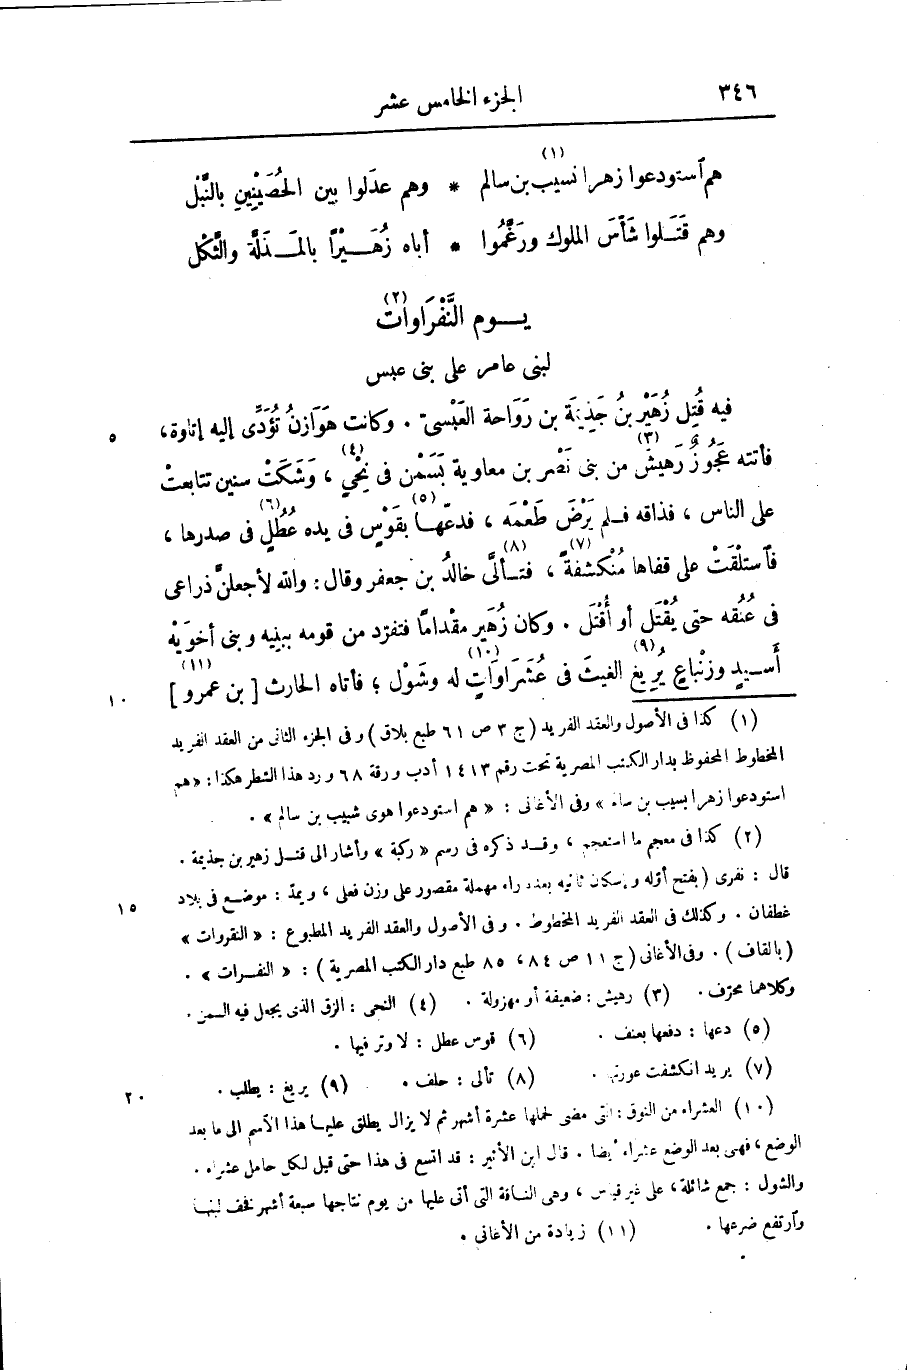 ٣٤٦
الجزء الخامس عشر
هم ٱستودعوا زهرا نسيب بن سالم (١) * وهم عدَلوا بين الحُصَيْنِينِ بالنَّبْل
وهم قَتَلوا شَأْسَ الملوك ورَغَّمُوا * أباه زُهَيْرًا بالمَذلَّة والثُّكْل
يوم النَّفْرَاوات (٢)
لبنى عامر على بنى عبس
فيه قُتِل زُهَيْر بنُ جَذِيمَة بن رَوَاحة العَبْسىّ . وكانت هَوَازنُ تُؤَدَّى إليه إتاوة، ٥
فأتته عَجُوزٌ رَهِيشٌ (٣) من بنى نَصْر بن معاوية بسَمْن فى نِحْىٍ (٤) ، وَشَكَتْ سنين تتابعتْ
على الناس ، فذاقه فلم يَرْضَ طَعْمَه ، فدعّها (٥) بقَوْس فى يده عُطُلٍ (٦) فى صدرها ،
فٱستلْقَتْ على قفاها مُنْكشفةً (٧) ، فتألَّى (٨) خالدُ بن جعفر وقال : والله لأجعلنّ ذراعى
فى عُنُقه حتى يُقْتَل أو أُقْتَل . وكان زُهَير مقْدامًا فتفرّد من قومه ببنيه وبنى أخوَيْه
أَسِيدٍ وزنْباعٍ يُرِيغ (٩) الغيثَ فى عُشَرَاوَاتٍ (١٠) له وشَوْل ؛ فأتاه الحارث [ بن عمرو ] (١١) ١٠
(١) كذا فى الأصول والعقد الفريد (ج ٣ ص ٦١ طبع بلاق) وفى الجزء الثانى من العقد الفريد
المخطوط المحفوظ بدار الكتب المصرية تحت رقم ١٤١٣ أدب ورقة ٦٨ ورد هذا الشطر هكذا : «هم
استودعوا زهرا بسيب بن سالم » وفى الأغانى : « هم استودعوا هوى شبيب بن سالم » .
(٢) كذا فى معجم ما استعجم ، وقد ذكره فى رسم « ركبة » وأشار الى قتل زهير بن جذيمة .
قال : نفرى ( بفتح أوّله وإسكان ثانيه بعده راء مهملة مقصور على وزن فعلى ، ويمدّ : موضع فى بلاد ١٥
غطفان . وكذلك فى العقد الفريد المخطوط . وفى الأصول والعقد الفريد المطبوع : « النقروات »
( بالقاف ) . وفى الأغانى ( ج ١١ ص ٨٤ ، ٨٥ طبع دار الكتب المصرية ) : « النفرات » .
وكلاهما محرّف . (٣) رهيش : ضعيفة أو مهزولة . (٤) النحى : الزق الذى يجعل فيه السمن .
(٥) دعها : دفعها بعنف . (٦) قوس عطل : لا وتر فيها .
(٧) يريد انكشفت عورتها . (٨) تألى : حلف . (٩) يريغ : يطلب . ٢٠
(١٠) العشراء من النوق : التى مضى لحملها عشرة أشهر ثم لا يزال يطلق عليها هذا الٱسم الى ما بعد
الوضع ، فهى بعد الوضع عشراء أيضا . قال ابن الأثير : قد اتسع فى هذا حتى قيل لكل حامل عشراء .
والشول : جمع شائلة ، على غير قياس ، وهى الناقة التى أتى عليها من يوم نتاجها سبعة أشهر فخف لبنها
وٱرتفع ضرعها . (١١) زيادة من الأغانى .